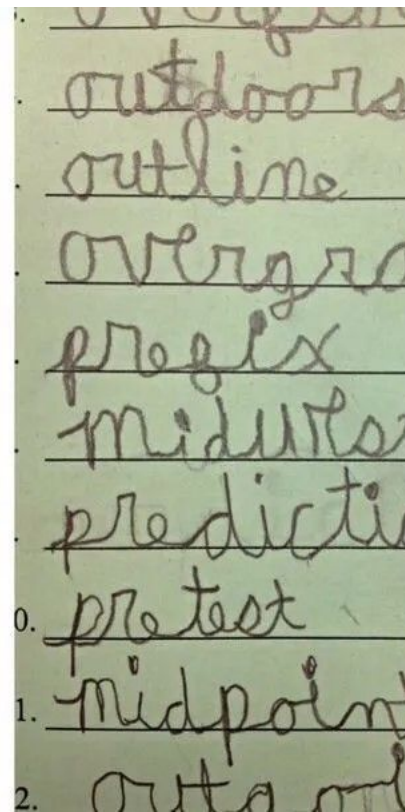 outdoors
outline
overgro
prefix
midwest
predictio
0. pretest
1. midpoint
2. outgoi